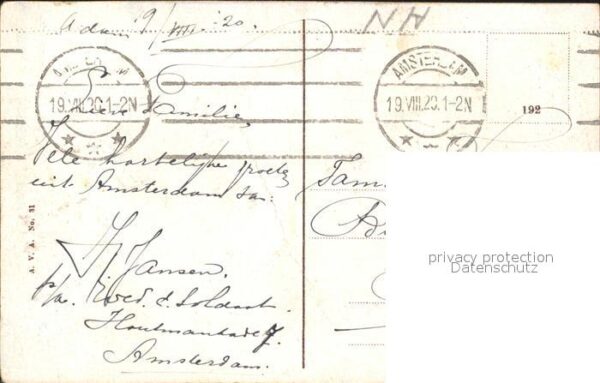 Adam 19/VIII-20.
NH
AMSTERDAM
19.VIII.20.1-2N
AMSTERDAM
19.VIII.20.1-2N
192
Lieve Familie,
Vele hartelijke groeten
uit Amsterdam van:
Jansen.
p/a. Wed. d. Soldaat.
Houtmankade
Amsterdam.
A. V. A. No. 31
Fam
privacy protection
Datenschutz